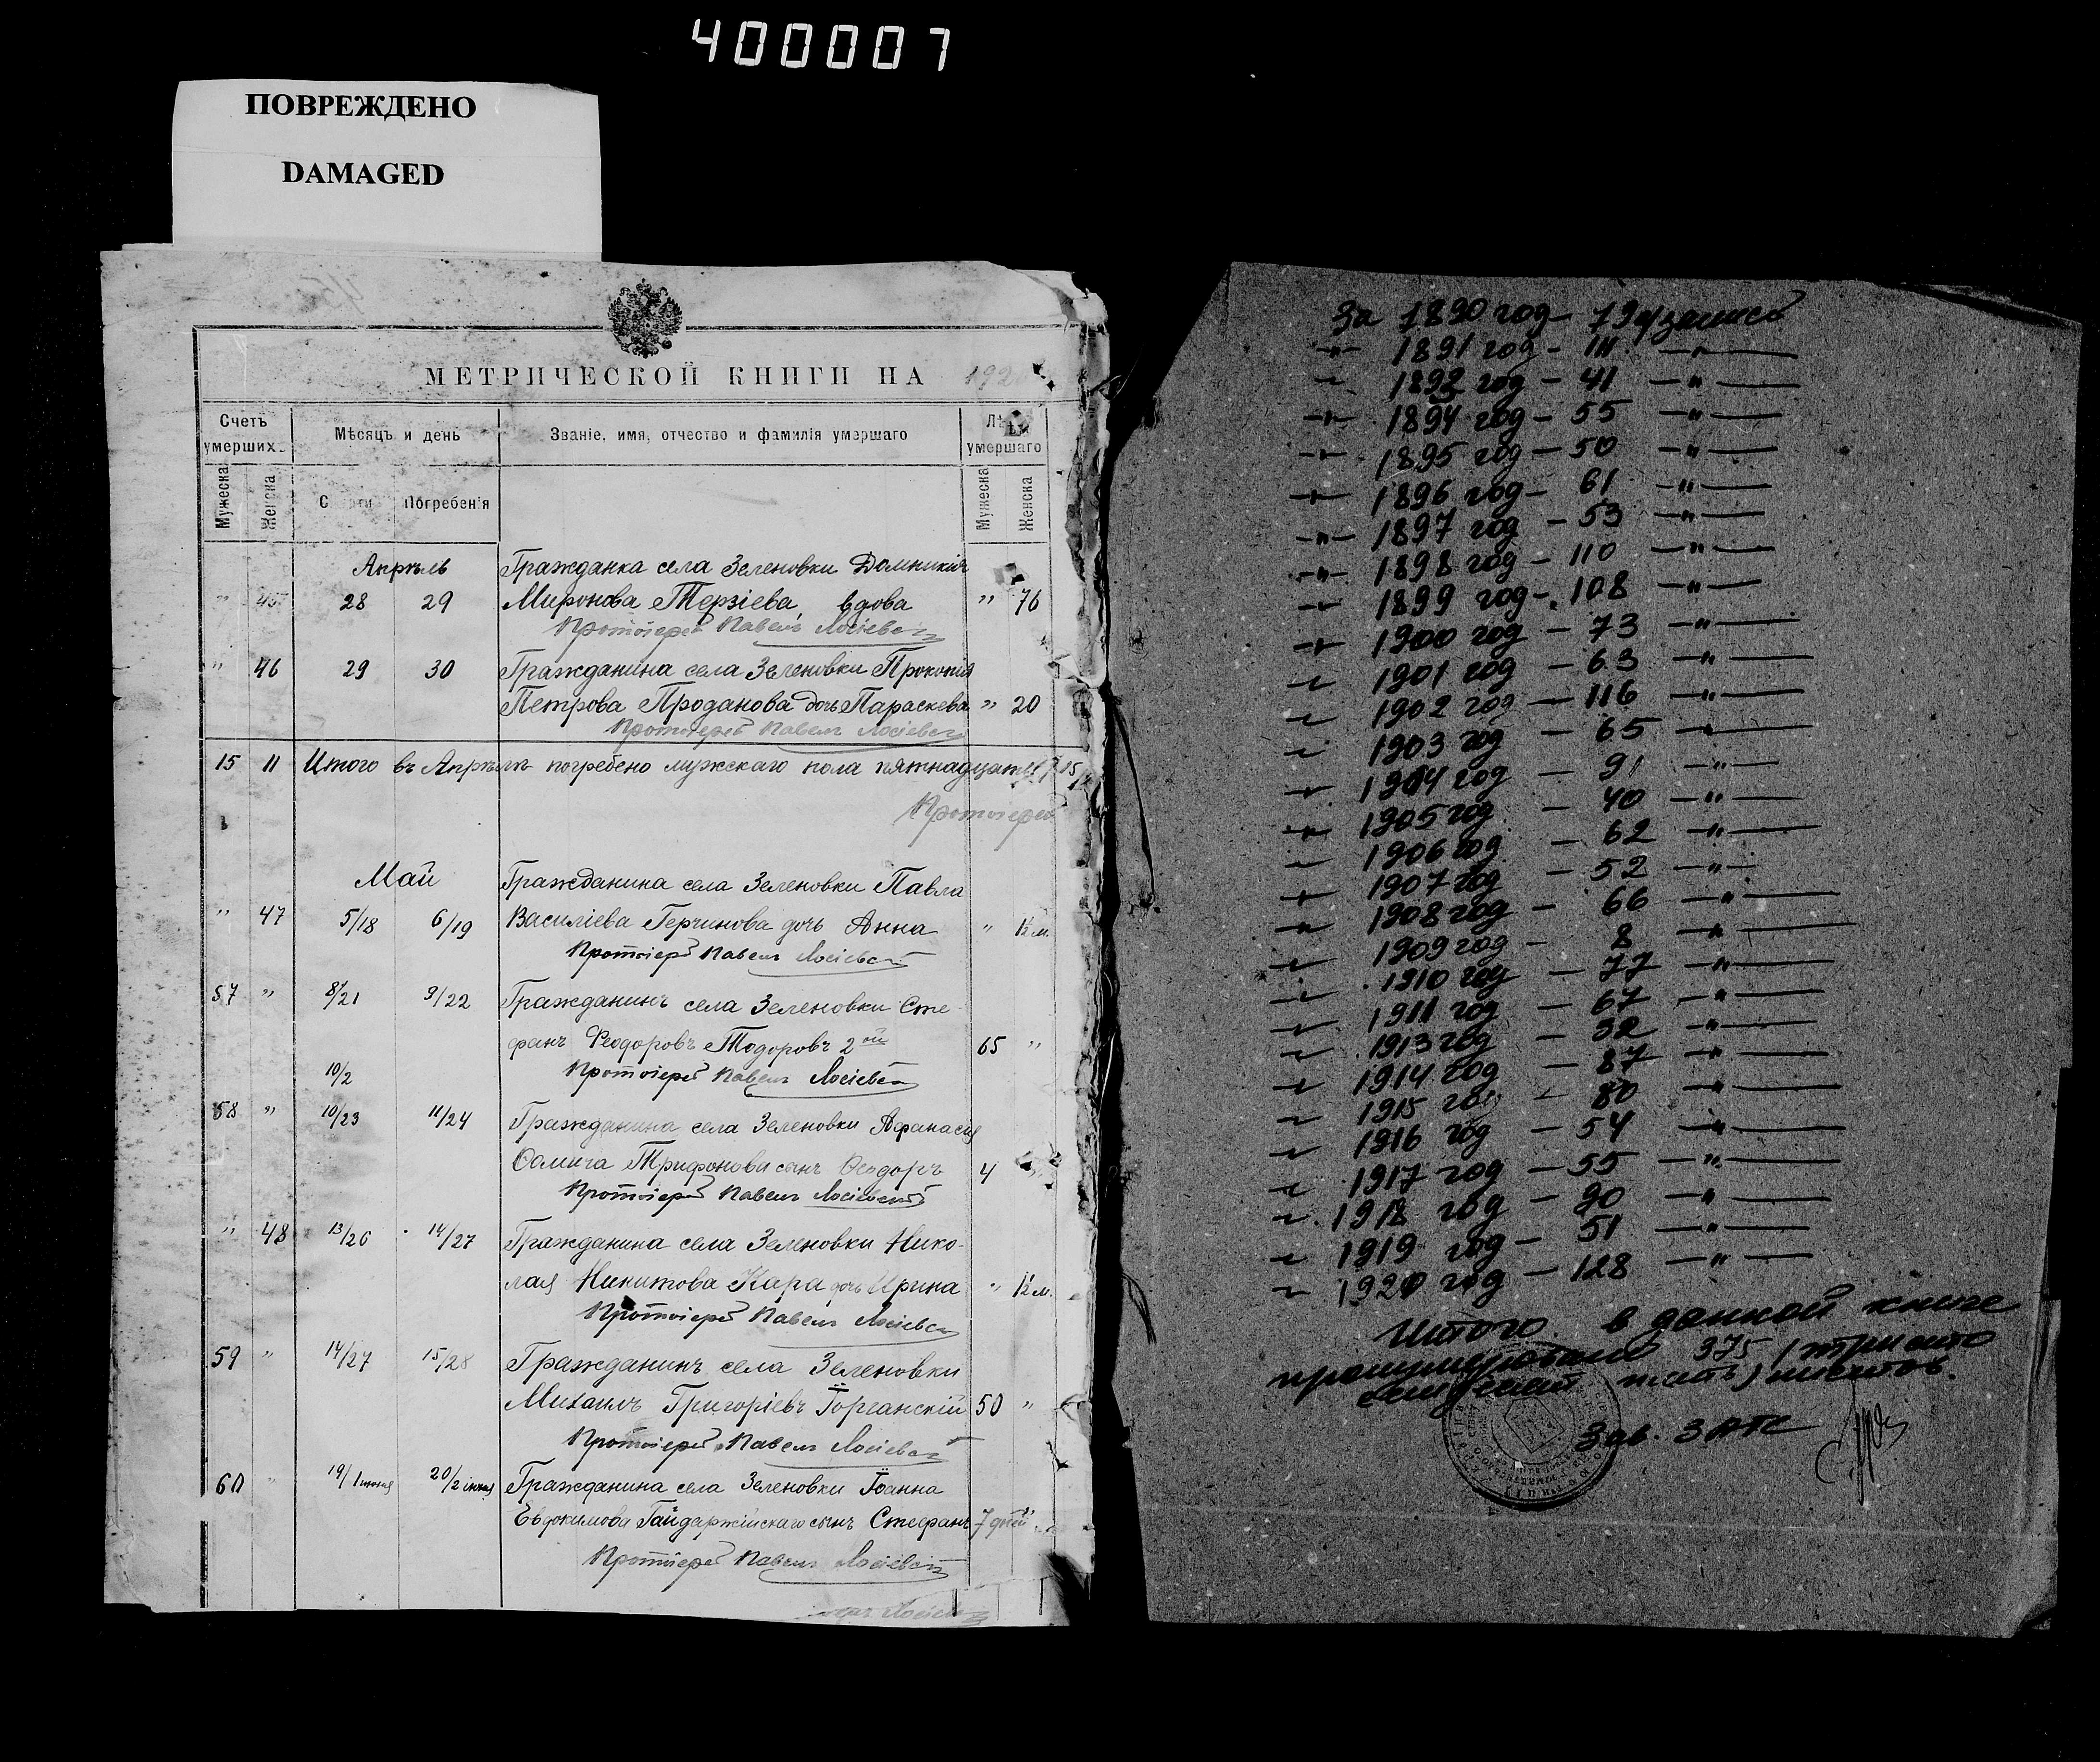 400007
ПОВРЕЖДЕНО
DAMAGED
МЕТРИЧЕСКОЙ КНИГИ НА 192
Счетъ умершихъ.
Мѣсяцъ и день
Званіе, имя, отчество и фамилія умершаго
Лѣта умершаго
Мужеска
Женска
Смерти
Погребенія
Мужеска
Женска
Апрѣль Гражданка села Зеленовки Домникія
" 45 28 29 Миронова Терзіева, вдова " 76
Протоіерей Павелъ Лосіевскій
" 46 29 30 Гражданина села Зеленовки Прокопія
Петрова Проданова дочь Параскева " 20
Протоіерей Павелъ Лосіевскій
15 11 Итого въ Апрѣлѣ погребено мужскаго пола пятнадцать 15
Протоіерей
Май Гражданина села Зеленовки Павла
" 47 5/18 6/19 Василіева Герчинова дочь Анна "
Протоіерей Павелъ Лосіевскій
57 " 8/21 9/22 Гражданинъ села Зеленовки Сте-
фанъ Ѳеодоровъ Тодоровъ 2ой 65 "
10/2 Протоіерей Павелъ Лосіевскій
58 " 10/23 11/24 Гражданина села Зеленовки Афанасія
Трифонова сынъ Ѳеодоръ 4
Протоіерей Павелъ Лосіевскій
" 48 13/26 14/27 Гражданина села Зеленовки Нико-
лая Никитова Кара дочь Ирина "
Протоіерей Павелъ Лосіевскій
59 " 14/27 15/28 Гражданинъ села Зеленовки
Михаилъ Григоріевъ Горганскій 50 "
Протоіерей Павелъ Лосіевскій
60 " 19/1 іюня 20/2 іюня Гражданина села Зеленовки Іоанна
Евдокимова Гайдаржійскаго сынъ Стефанъ 7 дней "
Протоіерей Павелъ Лосіевскій
За 1890 год - 79 записей
-"- 1891 год - 111 -"-
-"- 1892 год - 41 -"-
-"- 1894 год - 55 -"-
-"- 1895 год - 50 -"-
-"- 1896 год - 61 -"-
-"- 1897 год - 53 -"-
-"- 1898 год - 110 -"-
-"- 1899 год - 108 -"-
-"- 1900 год - 73 -"-
-"- 1901 год - 63 -"-
-"- 1902 год - 116 -"-
-"- 1903 год - 65 -"-
-"- 1904 год - 91 -"-
-"- 1905 год - 40 -"-
-"- 1906 год - 62 -"-
-"- 1907 год - 52 -"-
-"- 1908 год - 66 -"-
-"- 1909 год - 8 -"-
-"- 1910 год - 77 -"-
-"- 1911 год - 67 -"-
-"- 1913 год - 32 -"-
-"- 1914 год - 87 -"-
-"- 1915 год - 80 -"-
-"- 1916 год - 54 -"-
-"- 1917 год - 55 -"-
-"- 1918 год - 90 -"-
-"- 1919 год - 51 -"-
-"- 1920 год - 128 -"-
Итого в данной книге
прошнуровано 375 (триста
семьдесят пять) листов.
Зав. ЗАГС